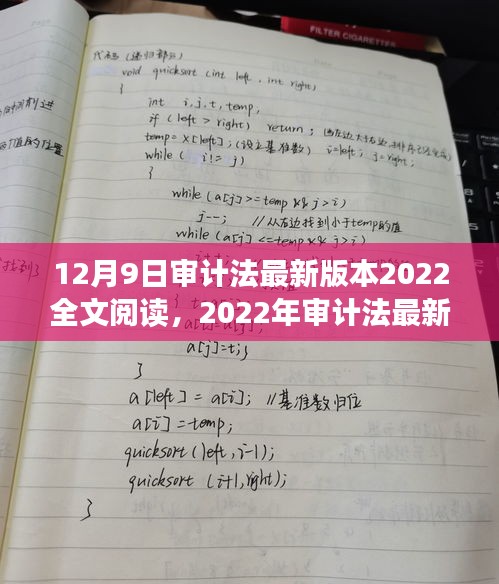 FILTER CIGARETTES
代码(递归部分)
void quicksort (int left, int right)
{
int i,j,t,temp;
if (left > right) return;
temp= X[left]; (设立基准数) i=left; j=right;
while ( i!= j)
{
while (a[j]>=temp && j>i)
j--; //从右边找到小于temp的值
while (a[j] <=temp && j>i)
12月9日审计法最新版本2022
全文阅读，2022年审计法最新
a[j]=t;
}
a[left] = a[i]; //基准数归位
a[i]=temp;
quicksort (left,i-1);
quicksort (i+1,right);
}